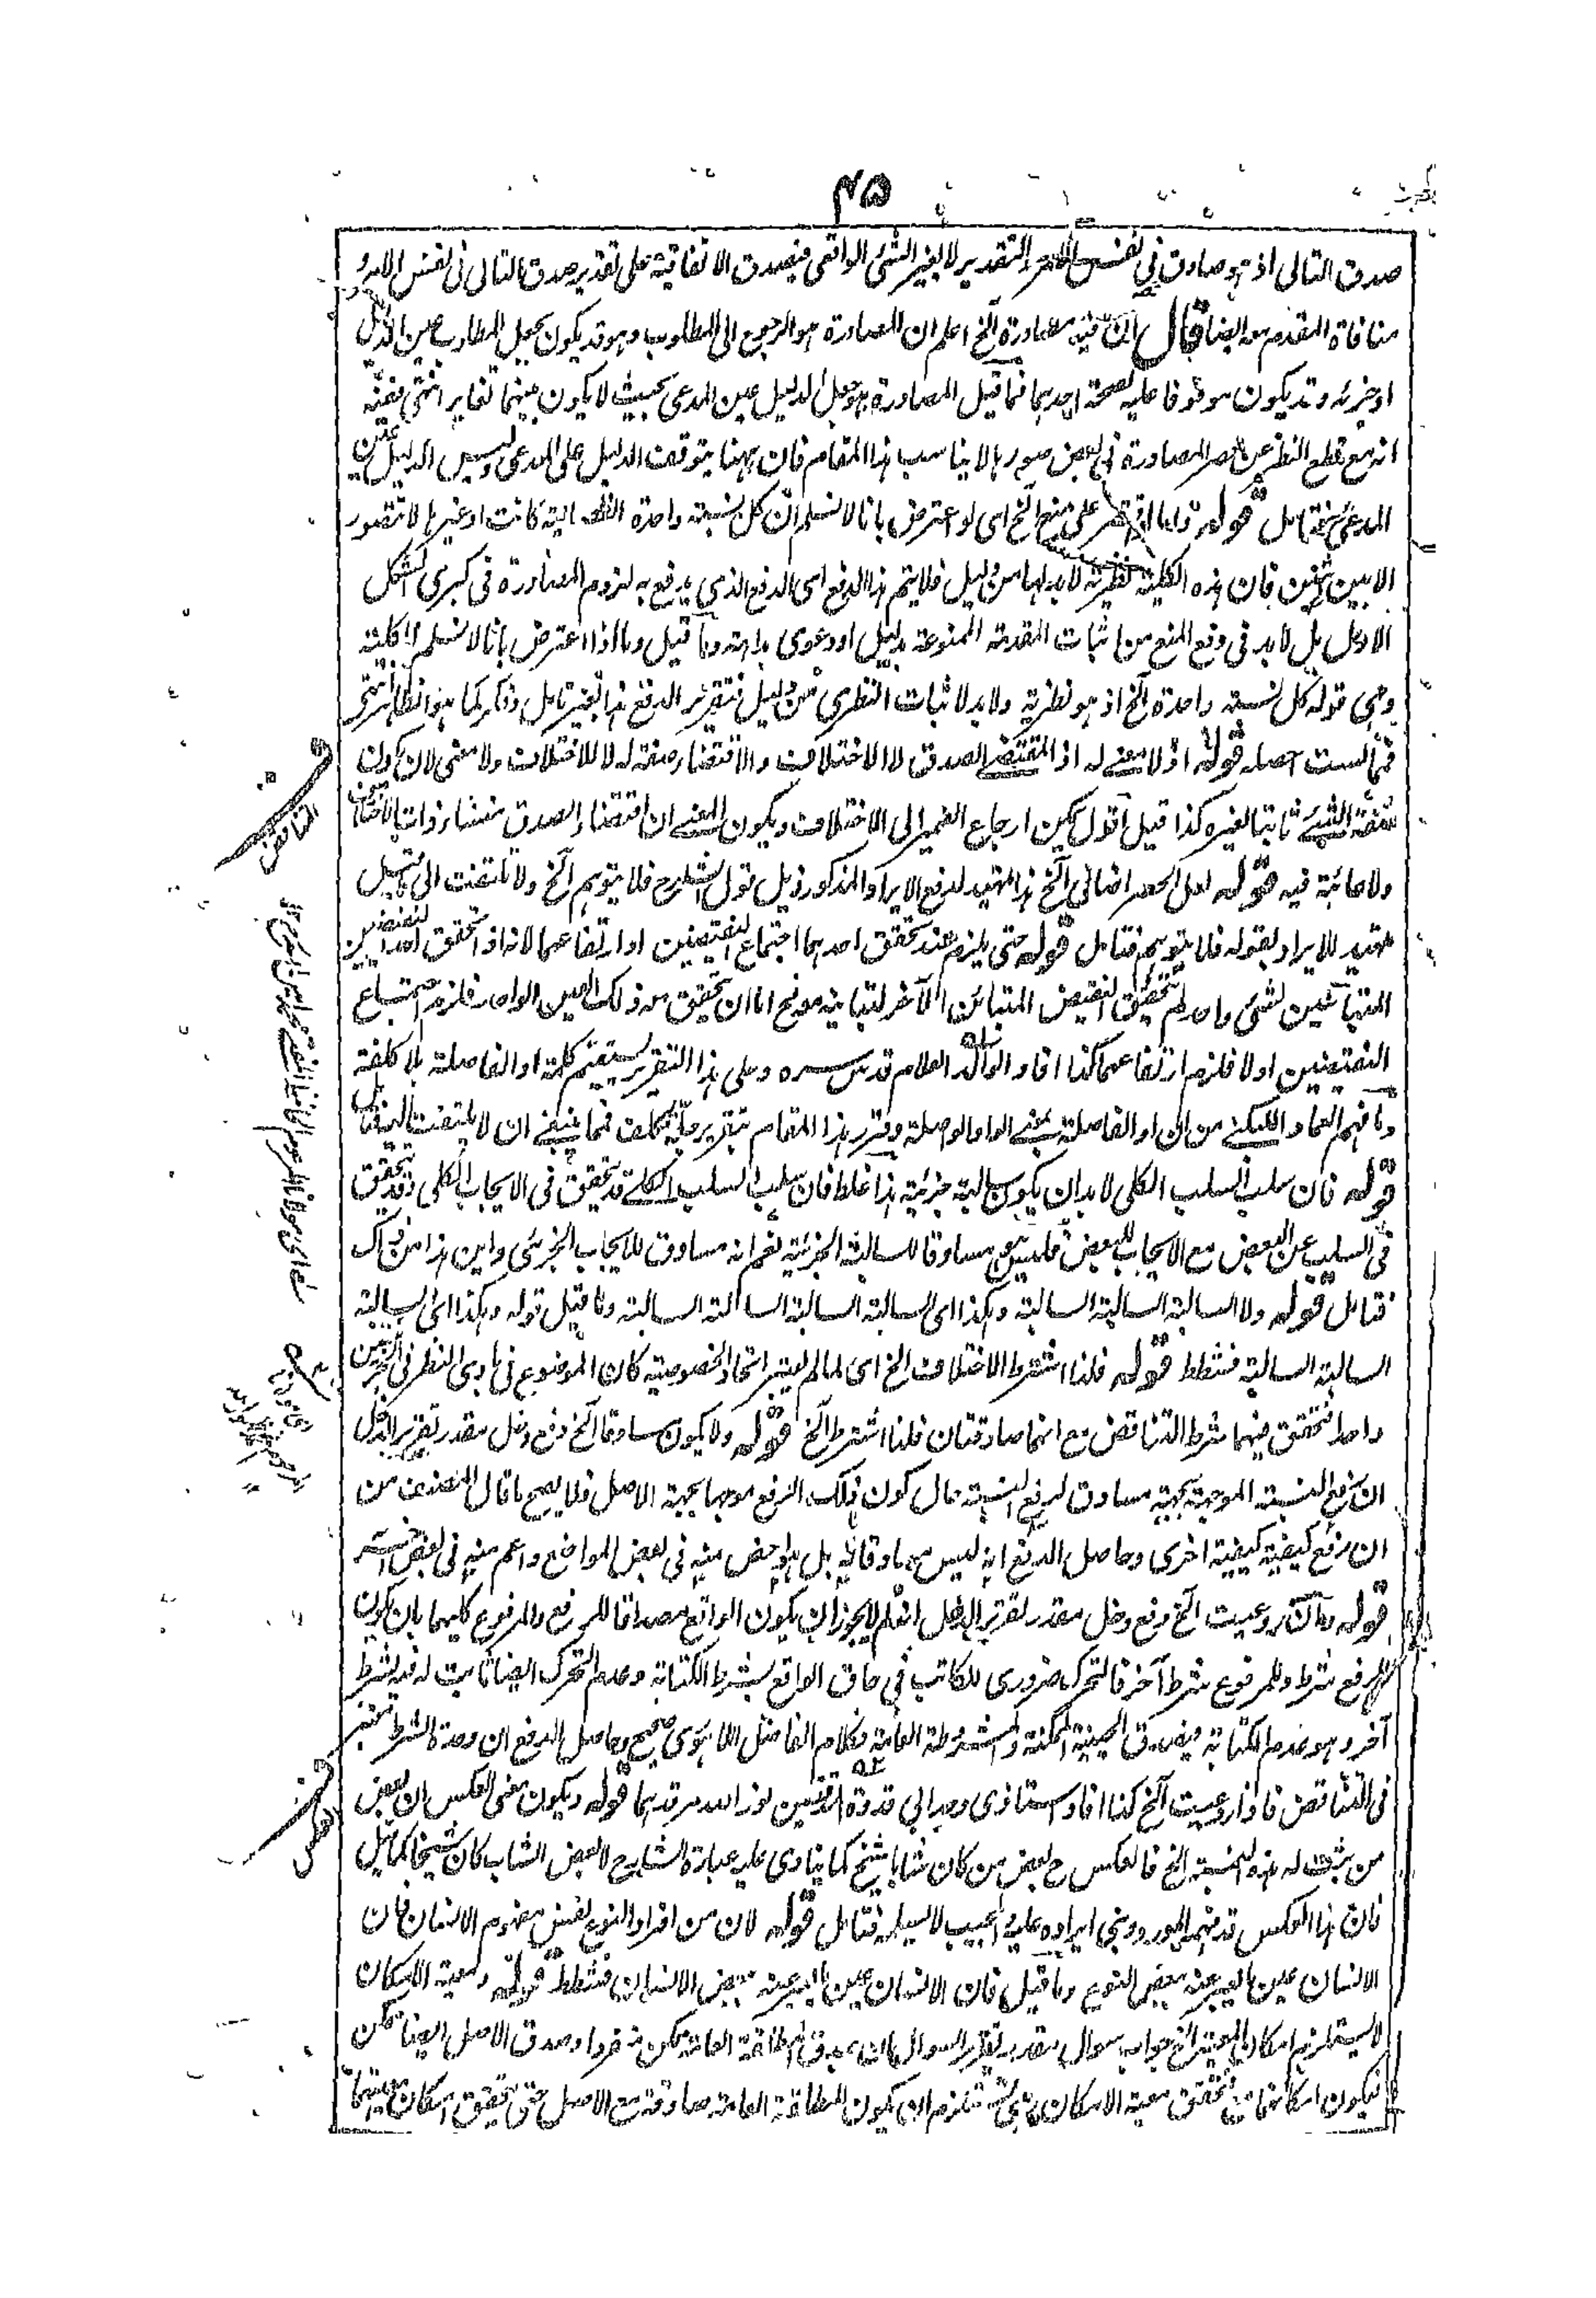 ٤٥
صدق التالى اذ هو صادق فى نفس الامر التقدير لا بغير الشئ الواقعى فيصدق الاتفاقية على تقدير صدق التالى فى نفس الامر و
منافاة المقدم معه ايضا قال ان فيه مصادرة الخ اعلم ان المصادرة هو الرجوع الى المطلوب وهو قد يكون بجعل المطلوب عين الدليل
او جزئه وقد يكون موقوفا عليه لصحة احدهما فما قيل المصادرة هو جعل الدليل عين المدعى بحيث لا يكون بينهما تغاير انتهى ففيه
انه مع قطع النظر عن حصر المصادرة فى بعض صورها لا يناسب هذا المقام فان ههنا يتوقف الدليل على المدعى وليس الدليل عين
المدعى فتامل قوله واما اقتصر على منع الخ اى لو اعترض بانا لا نسلم ان كل نسبة واحدة اتصالية كانت او غيرها لا تتصور
الا بين شيئين فان هذه الكلية نظرية لا بد لها من دليل فلا يتم هذا الدفع اى الدفع الذى يدفع به لزوم المصادرة فى كبرى الشكل
الاول بل لا بد فى دفع المنع من اثبات المقدمة الممنوعة بدليل او دعوى بداهة وما قيل واما اذا اعترض بانا لا نسلم الكلية
وهى قوله كل نسبة واحدة الخ اذ هو نظرية ولا بد لاثبات النظرى من دليل فتقرير الدفع هذا بغير تامل وذكر كما هو الظاهر انتهى
فما لست احصله قوله اذ لا معنے له اذ المقتضے الصدق لا الاختلاف والاقتضاء صفة له لا للاختلاف ولا معنى لان يكون
صفة الشئے ثابتا لغيره كذا قيل اقول يمكن ارجاع الضمير الى الاختلاف ويكون المعنے ان اقتضاء الصدق منشاء ذات الاختلاف
ولا عائبة فيه قوله لعل الحصر اضافى الخ هذا تمهيد لدفع الايراد المذكور ذيل قول الشارح فلا يتوهم الخ ولا تلتفت الى ما قيل
تمهيد للايراد بقوله فلا يتوهم فتامل قوله حتى يلزم عند تحقق احدهما اجتماع النقيضين او ارتفاعهما لانه اذ تحقق احد النقيضين
المتبائنين لشئ واحد لم تحقق لنقيض المتبائن الآخر لتباينه معه اما ان يتحقق معه ذلك العين الواحد فلزم اجتماع
النقيضين اولا فلزم ارتفاعهما كذا افاد الوالد العلام قدس سره وعلى هذا التقرير يستقيم كلمة او الفاصلة بلا كلفة
وما فهم العماد اللبكنے من ان او الفاصلة بمعنے الواو الواصلة وقرر هذا المقام بتقرير وتكلف فما ينبغے ان لا يلتفت اليه فتامل
قوله فان سلب السلب الكلى لا بد ان يكون سالبة جزئية هذا غلط فان سلب السلب الكلے قد يتحقق فى الايجاب الكلى وقد يتحقق
فى السلب عن البعض مع الايجاب للبعض فليس هو مساوقا للسالبة الجزئية نعم انه مساوق للايجاب الجزئى واين هذا من ذاك
فتامل قوله ولا السالبة السالبة السالبة وهكذا اى السالبة السالبة السالبة السالبة وما قيل قوله وهكذا اى السالبة
السالبة السالبة فشطط قوله فلذا اشترط الاختلاف الخ اى لما لم يعتبر اتحاد الخصوصية كان الموضوع فى بادى النظر فى الجزئيتين
واحدا فتحقق فيهما شرط التناقض مع انهما صادقتان فلذا اشترط الخ قوله ولا يكون مساوقا الخ دفع دخل مقدر تقرير الدخل
ان رفع النسبة الموجهة بجهة مساوق لرفع النسبة حال كون ذلك الرفع موجها بجهة الاصل فلا يصح ما قال المصنف من
ان رفع كيفية كيفية اخرى وحاصل الدفع انه ليس مساوقا له بل هو اخص منه فى بعض المواضع واعم منه فى بعض آخر
قوله وما ان روعيت الخ دفع دخل مقدر تقرير الدخل انه لم لا يجوز ان يكون الواقع مصداقا للرفع والمرفوع كليهما بان يكون
للرفع شرط وللمرفوع شرط آخر فالتحرك ضرورى للكاتب فى حاق الواقع بشرط الكتابة وعدم التحرك ايضا ثابت له بشرط
آخر وهو عدم الكتابة فيصدق الحينية الممكنة والمشروطة العامة فكلام الفاضل اللاهورى صحيح وحاصل الدفع ان وحدة الشرط معتبر
فى التناقض فاذا روعيت الخ كذا افاد استاذى وجدابى قدوة المدققين نور الله مرقدهما قوله ويكون معنى العكس ان بعض
من يثبت له هذه النسبة الخ فالعكس ح بعض من كان شابا شيخ كما ينادى عليه عبارة الشارح لا بعض الشاب كان شيخا كما قيل
فان هذا العكس قد فهمه المورد وبنى ايراده عليه والمجيب لا يسلمه فتامل قوله لان من افراد النوع نفس مفهوم الانسان فان
الانسان عين ما يعبر عنه ببعض النوع وما قيل فان الانسان عين ما يعبر عنه ببعض الانسان فشطط قوله ومعية الامكان
لا يستلزم امكان المعية الخ جواب سوال مقدر تقرير السوال ان صدق المطلقة العامة ممكن منفردا وصدق الاصل ايضا ممكن
فيكون امكانهما فتحقق معية الامكان فيستلزم ان يكون المطلقة العامة صادقة مع الاصل حتى تحقق امكان معيتهما
التناقض
العكس